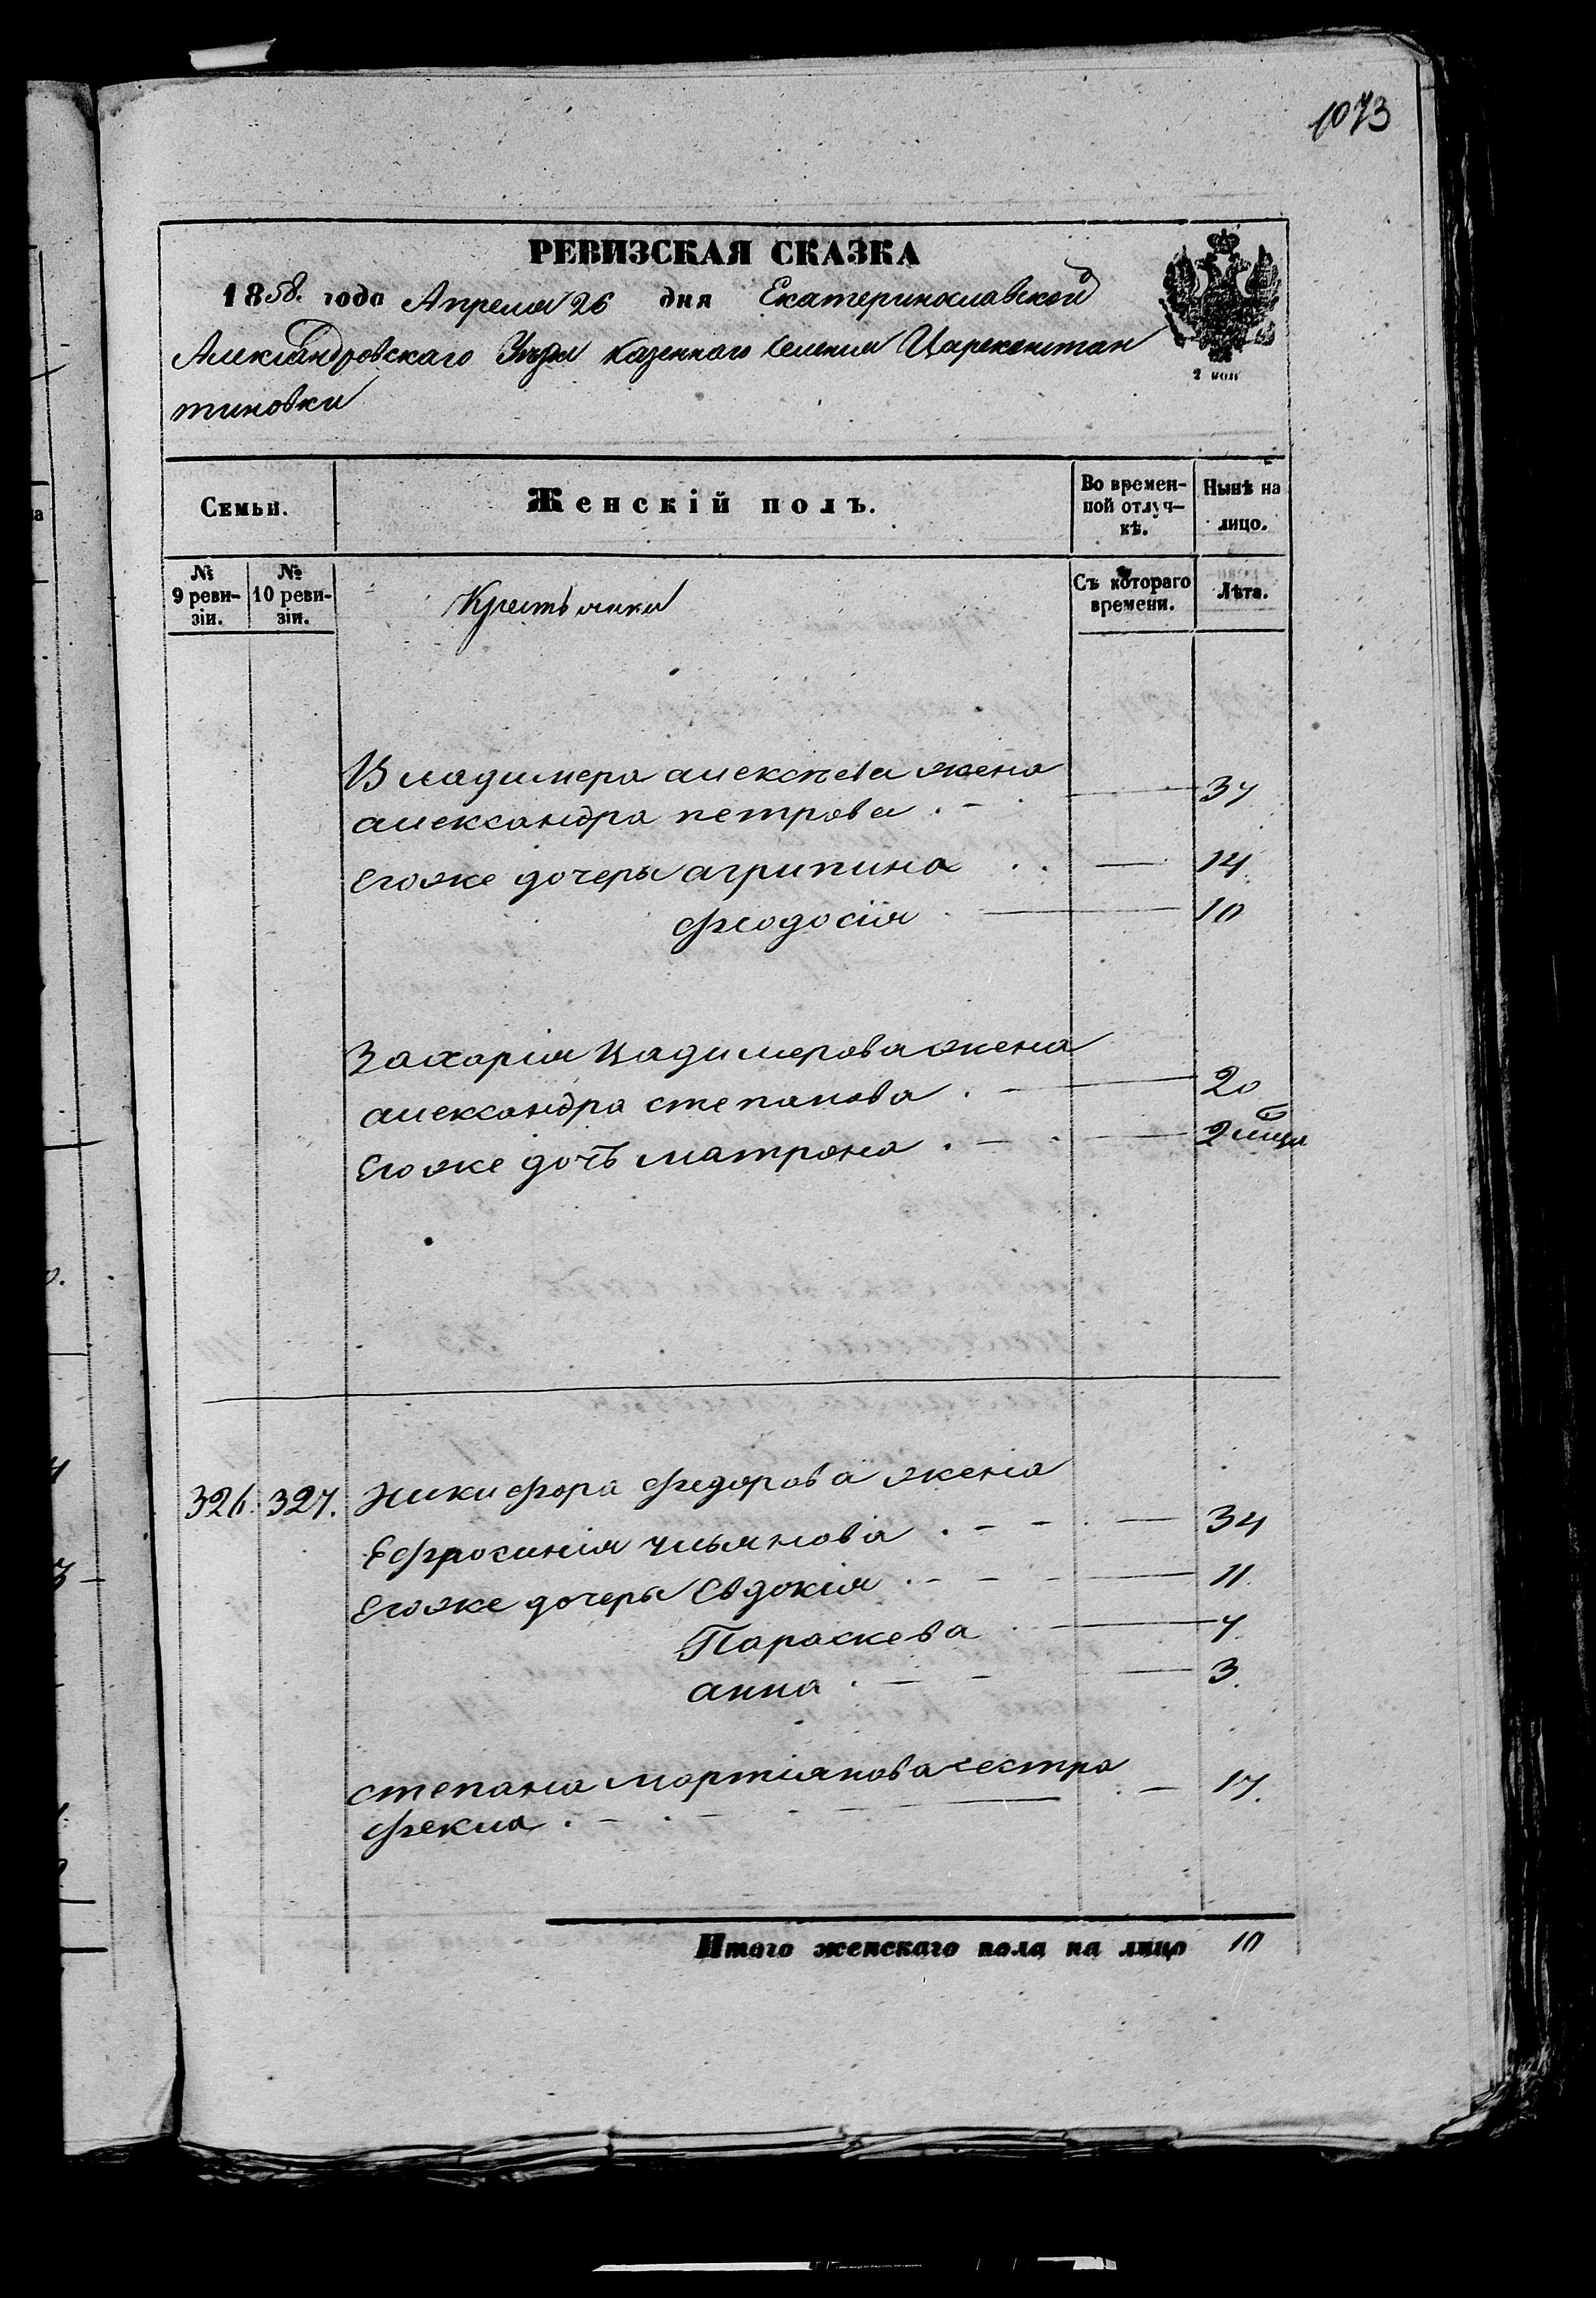 1073
РЕВИЗСКАЯ СКАЗКА
1858. года Апреля 26 дня Екатеринославской
Александровскаго Уезда Казенного Селения Цареконстан
тиновки
2 коп
Семьи.
Женскій полъ.
Во времен-
ной отлуч-
кѣ.
Нынѣ на
лицо.
№
9 реви-
зіи.
№
10 реви-
зіи.
Крестьянки
Съ котораго
времени.
Лѣта.
Владимера алексѣева жена
александра петрова . 37
Егоже дочери агрипина . . 14
феодосія . 10
Захарія Владимерова жена
александра степанова . 20
Егоже дочь матрона . 2 мца
326. 327. Никифора федорова жена
Ефросинія ульянова . 34
Егоже дочери Евдокія . 11.
Параскева . 7
анна . 3.
степана мартіянова сестра 17.
фекла .
Итого женскаго пола на лицо 10